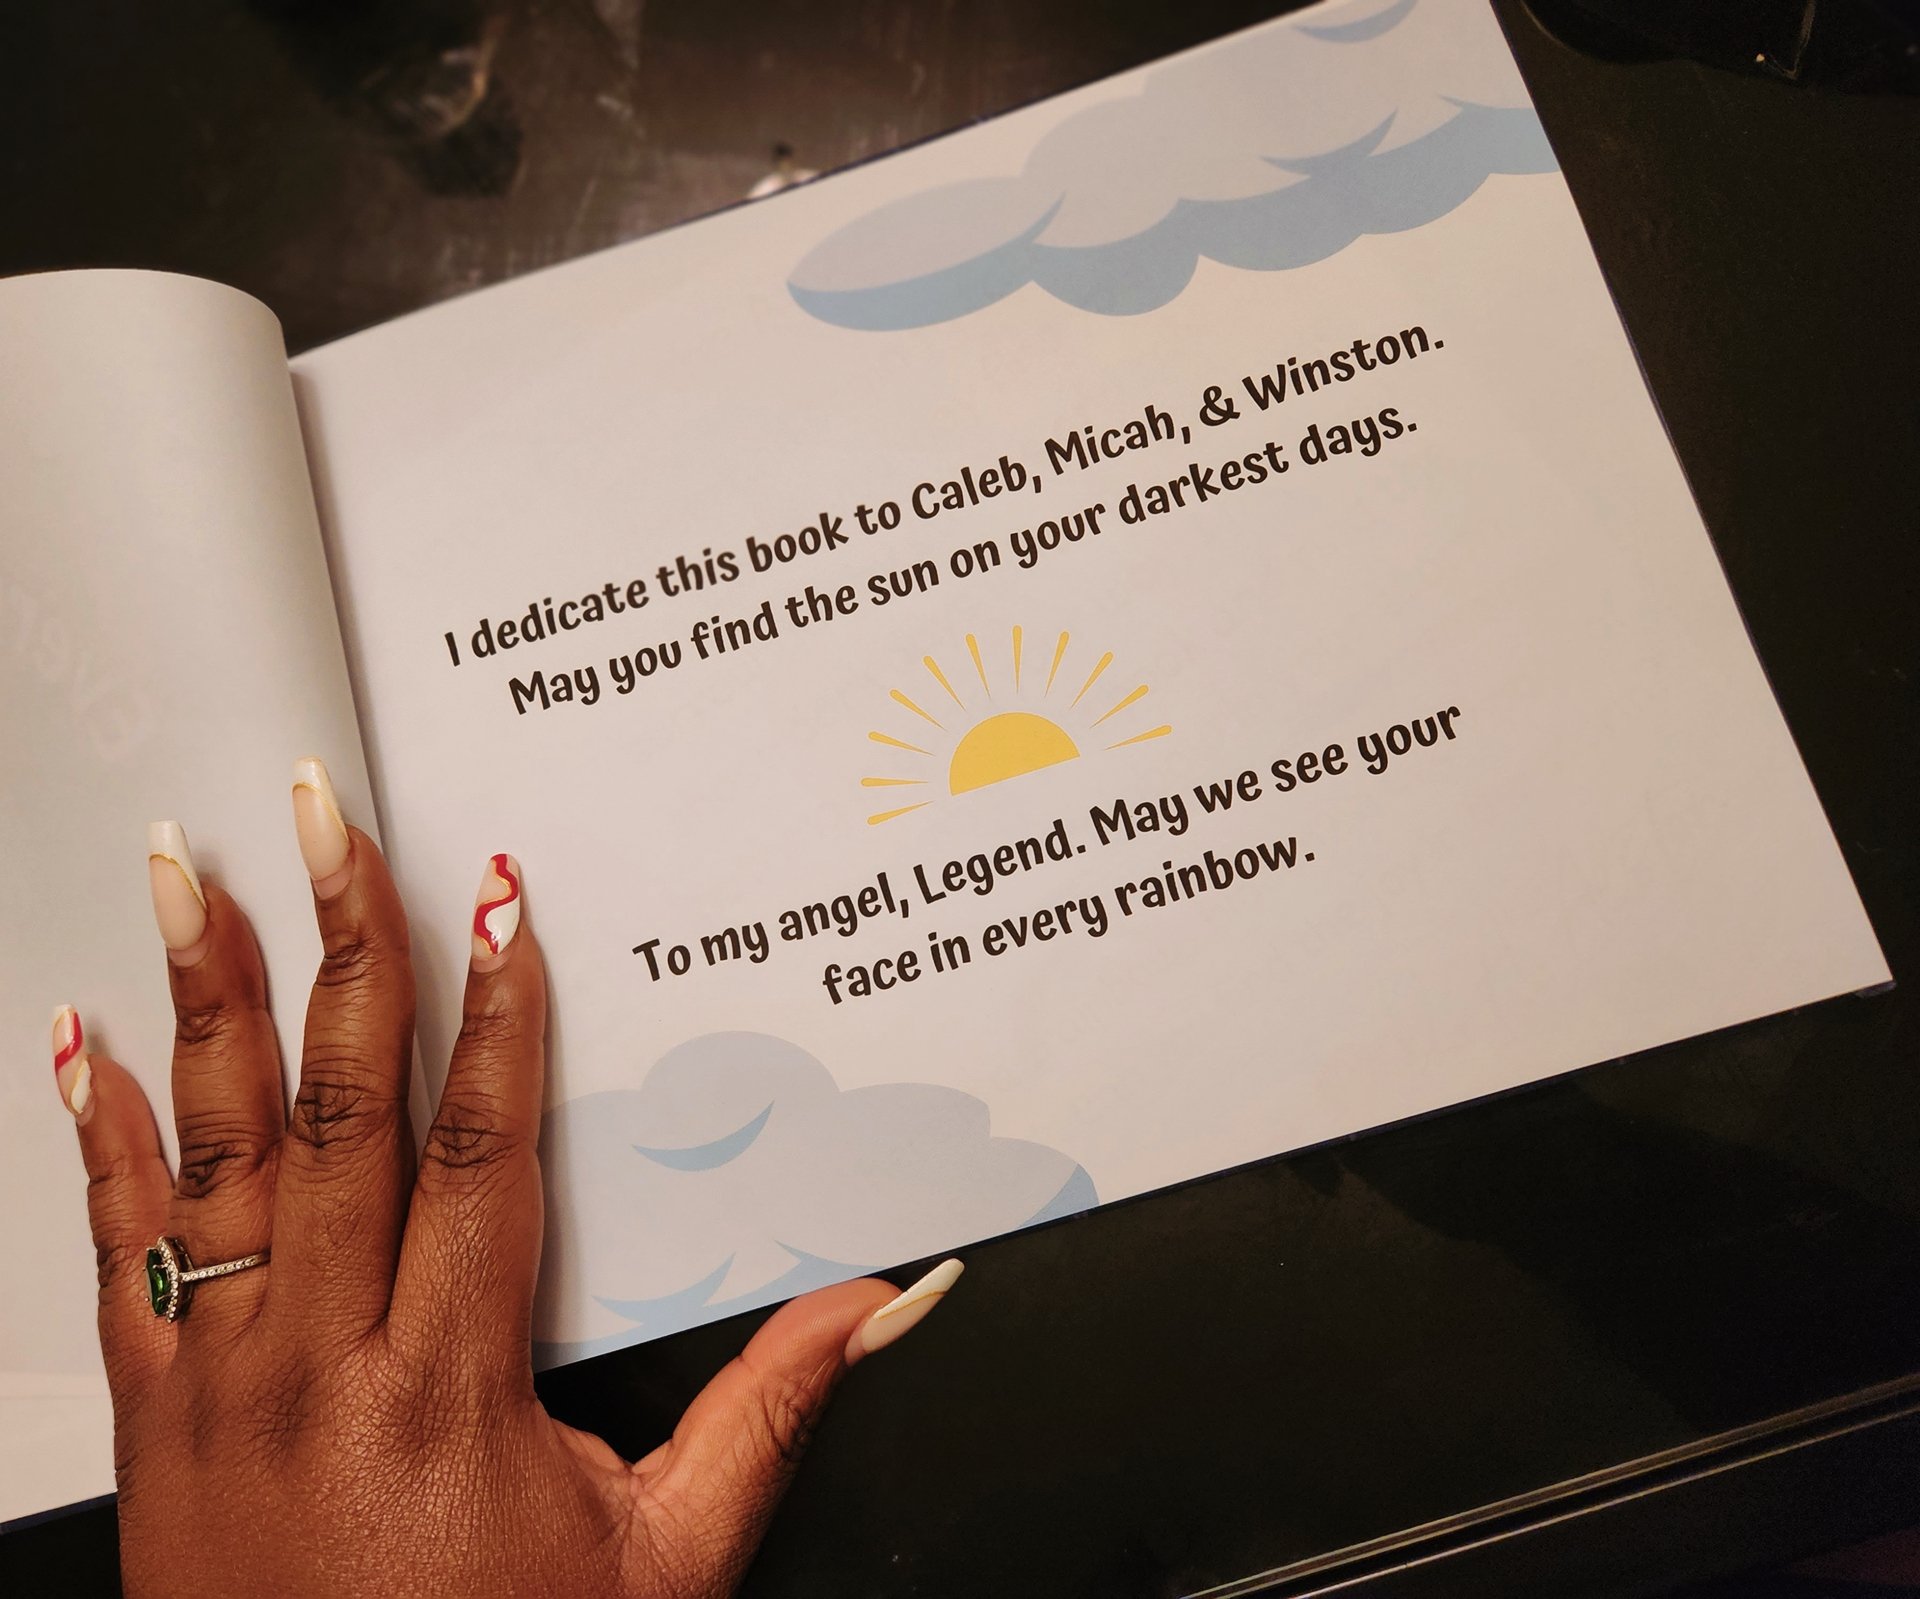 I dedicate this book to Caleb, Micah, & Winston.
May you find the sun on your darkest days.
To my angel, Legend. May we see your
face in every rainbow.